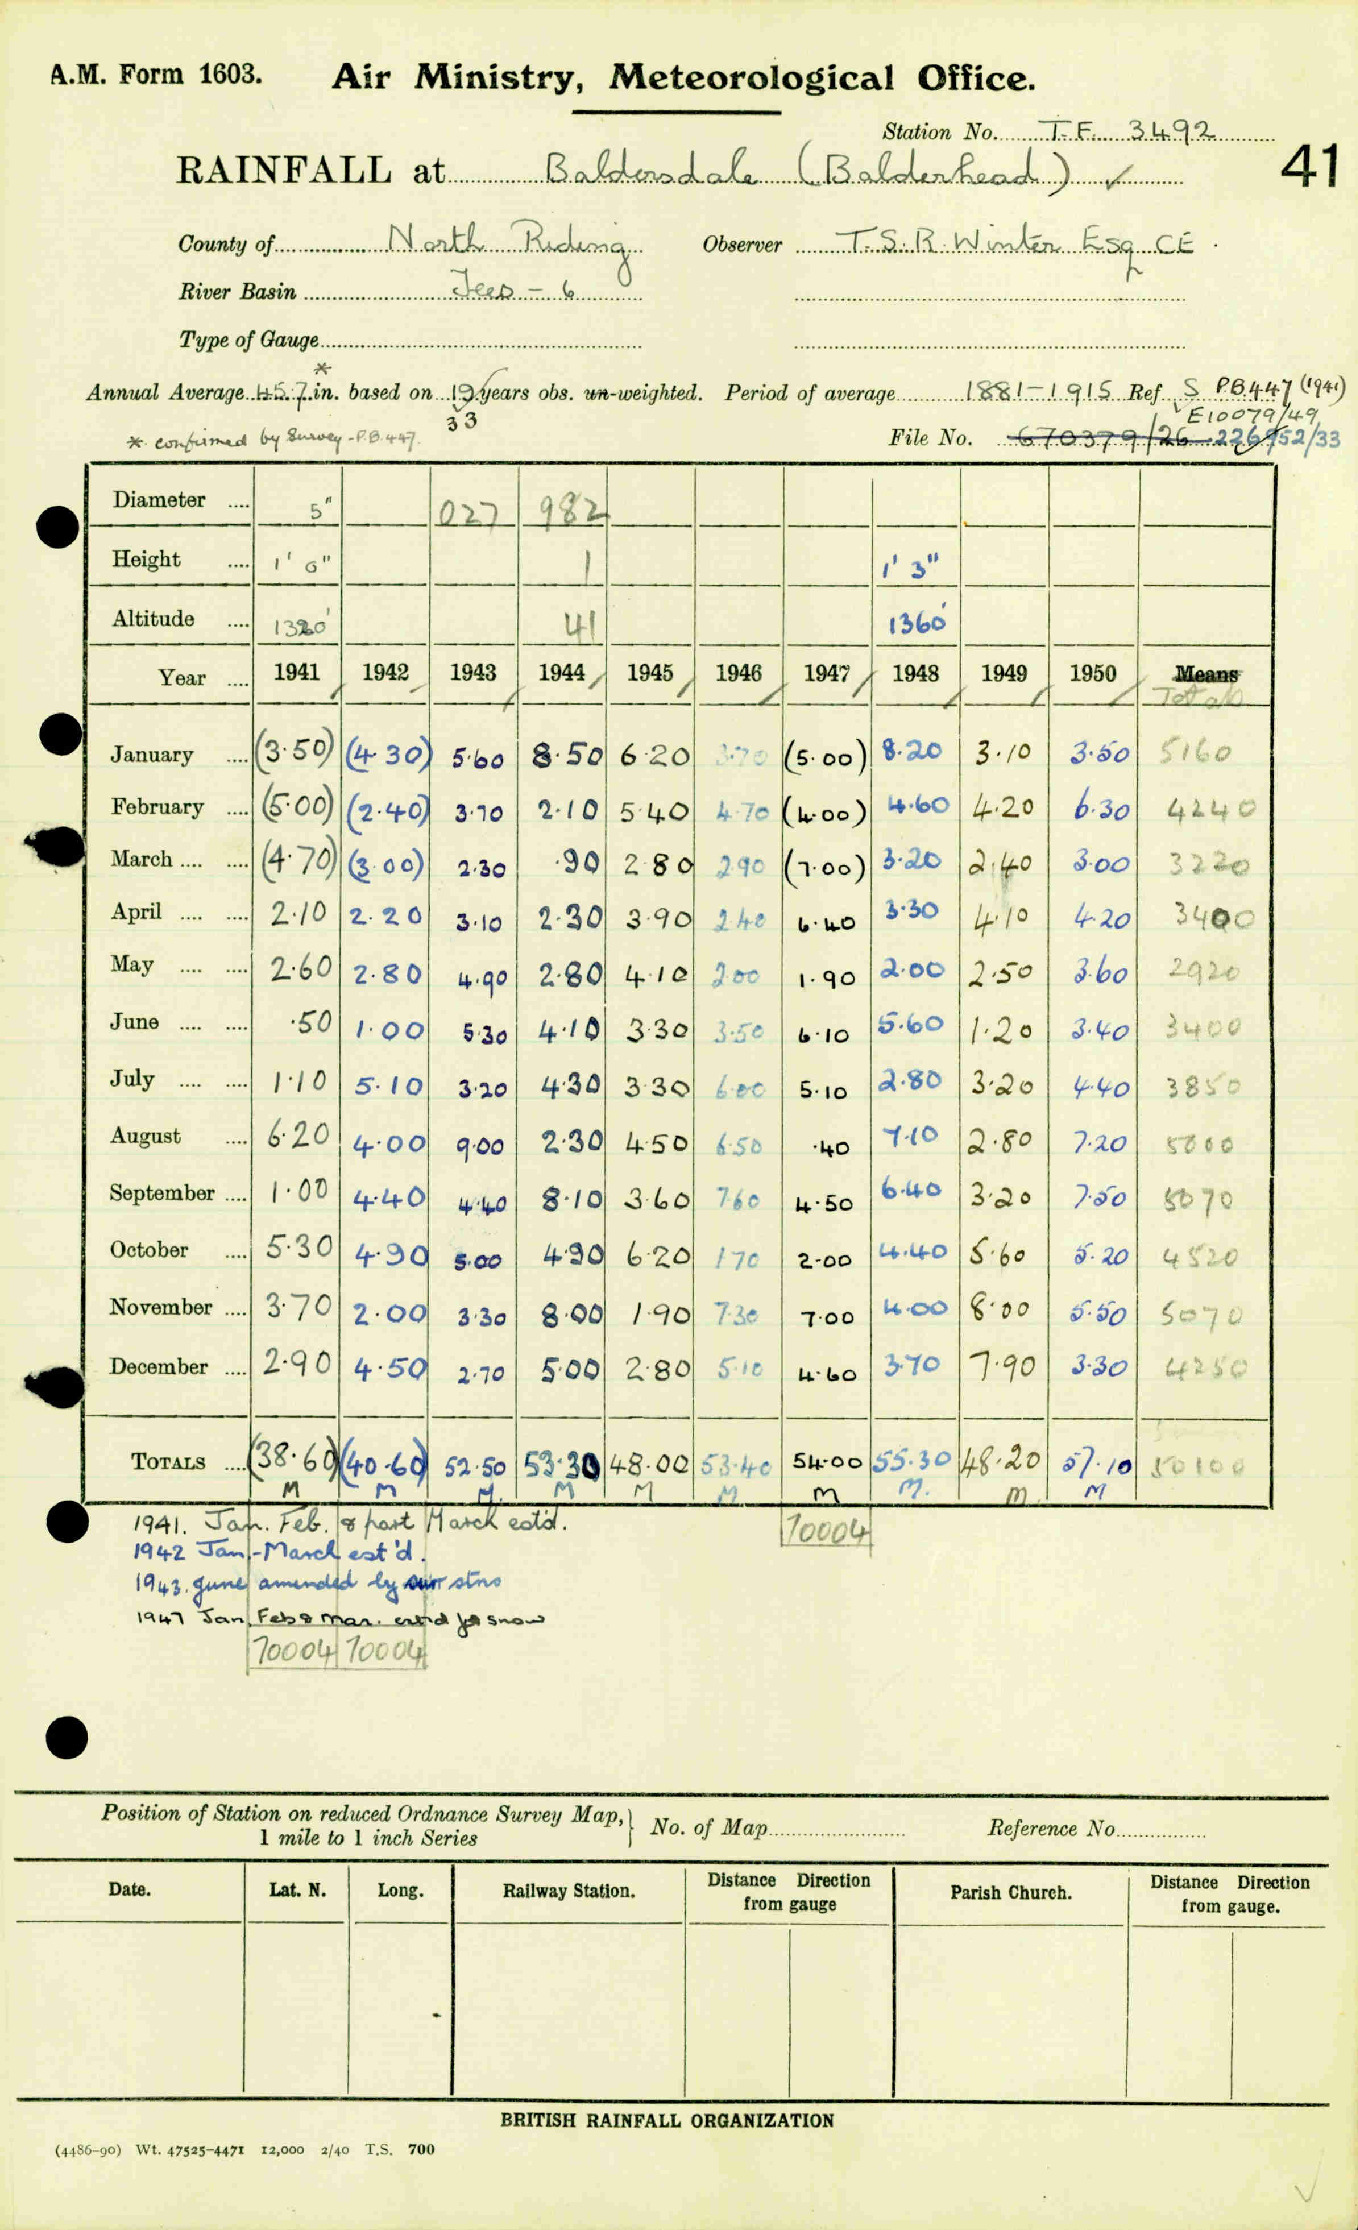 A.M. Form 1603. Air Ministry, Meteorological Office.
Station No. T.F. 3492
41
RAINFALL at Baldersdale (Balderhead) ✓
County of North Riding Observer T.S.R. Winter Esq CE.
River Basin Tees - 6
Type of Gauge
Annual Average 45.7* in. based on 19 years obs. un-weighted. Period of average 1881-1915 Ref. S P.B.447 (1941)
33 E10079/49
* confirmed by Survey - P.B.447. File No. 670379/26 226752/33
Diameter .... 5" 027 982
Height .... 1' 0" 1 1' 3"
Altitude .... 1320' 41 1360'
Year .... 1941 1942 1943 1944 1945 1946 1947 1948 1949 1950 Means
Totals
January .... (3.50) (4.30) 5.60 8.50 6.20 3.70 (5.00) 8.20 3.10 3.50 5160
February .... (5.00) (2.40) 3.70 2.10 5.40 4.70 (4.00) 4.60 4.20 6.30 4240
March .... .... (4.70) (3.00) 2.30 .90 2.80 2.90 (7.00) 3.20 2.40 3.00 3220
April .... .... 2.10 2.20 3.10 2.30 3.90 2.40 6.40 3.30 4.10 4.20 3400
May .... .... 2.60 2.80 4.90 2.80 4.10 2.00 1.90 2.00 2.50 3.60 2920
June .... .... .50 1.00 5.30 4.10 3.30 3.50 6.10 5.60 1.20 3.40 3400
July .... .... 1.10 5.10 3.20 4.30 3.30 6.00 5.10 2.80 3.20 4.40 3850
August .... 6.20 4.00 9.00 2.30 4.50 6.50 .40 7.10 2.80 7.20 5000
September .... 1.00 4.40 4.40 8.10 3.60 7.60 4.50 6.40 3.20 7.50 5070
October .... 5.30 4.90 5.00 4.90 6.20 1.70 2.00 4.40 5.60 5.20 4520
November .... 3.70 2.00 3.30 8.00 1.90 7.30 7.00 4.00 8.00 5.50 5070
December .... 2.90 4.50 2.70 5.00 2.80 5.10 4.60 3.70 7.90 3.30 4250
TOTALS .... (38.60) (40.60) 52.50 53.30 48.00 53.40 54.00 55.30 48.20 57.10 50100
M M M. M M M M M. M M
1941. Jan. Feb. & part March est'd. 70004
1942 Jan-March est'd.
1943. June amended by surr stns
1947 Jan, Feb & Mar. est'd for snow
70004 70004
Position of Station on reduced Ordnance Survey Map, 1 mile to 1 inch Series } No. of Map Reference No.
Date. Lat. N. Long. Railway Station. Distance Direction from gauge Parish Church. Distance Direction from gauge.
BRITISH RAINFALL ORGANIZATION
(4486-90) Wt. 47525-4471 12,000 2/40 T.S. 700